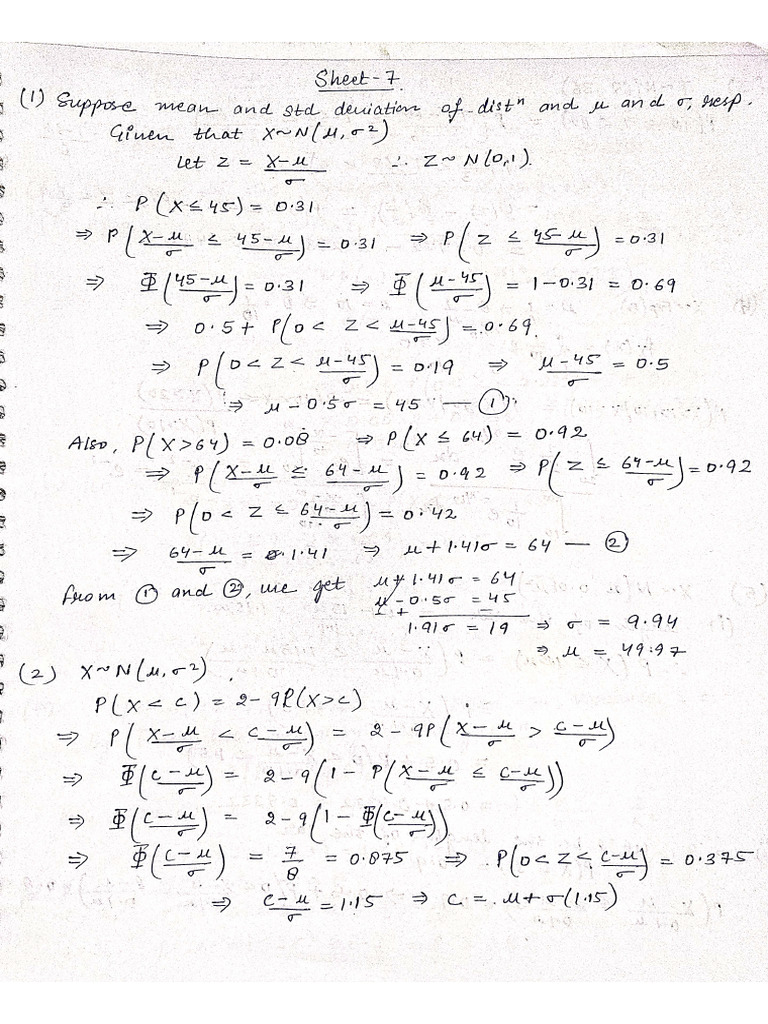 Sheet-7.
(1) Suppose mean and std deviation of distⁿ and μ and σ, resp.
Given that X~N(μ, σ²)
Let Z = (X-μ)/σ ∴ Z~N(0,1).
∴ P(X≤45) = 0.31
⇒ P((X-μ)/σ ≤ (45-μ)/σ) = 0.31 ⇒ P(Z ≤ (45-μ)/σ) = 0.31
⇒ Φ((45-μ)/σ) = 0.31 ⇒ Φ((μ-45)/σ) = 1-0.31 = 0.69
⇒ 0.5 + P(0 < Z < (μ-45)/σ) = 0.69
⇒ P(0 < Z < (μ-45)/σ) = 0.19 ⇒ (μ-45)/σ = 0.5
⇒ μ - 0.5σ = 45 — ①
Also, P(X>64) = 0.08 ⇒ P(X ≤ 64) = 0.92
⇒ P((X-μ)/σ ≤ (64-μ)/σ) = 0.92 ⇒ P(Z ≤ (64-μ)/σ) = 0.92
⇒ P(0 < Z ≤ (64-μ)/σ) = 0.42
⇒ (64-μ)/σ = 1.41 ⇒ μ + 1.41σ = 64 — ②
From ① and ②, we get μ + 1.41σ = 64
μ - 0.5σ = 45
- + -
1.91σ = 19 ⇒ σ = 9.94
⇒ μ = 49.97
(2) X~N(μ, σ²).
P(X < c) = 2-9P(X>c)
⇒ P((X-μ)/σ < (c-μ)/σ) = 2-9P((X-μ)/σ > (c-μ)/σ)
⇒ Φ((c-μ)/σ) = 2-9(1 - P((X-μ)/σ ≤ (c-μ)/σ))
⇒ Φ((c-μ)/σ) = 2-9(1 - Φ((c-μ)/σ))
⇒ Φ((c-μ)/σ) = 7/8 = 0.875 ⇒ P(0<Z<(c-μ)/σ) = 0.375
⇒ (c-μ)/σ = 1.15 ⇒ c = μ+σ(1.15)